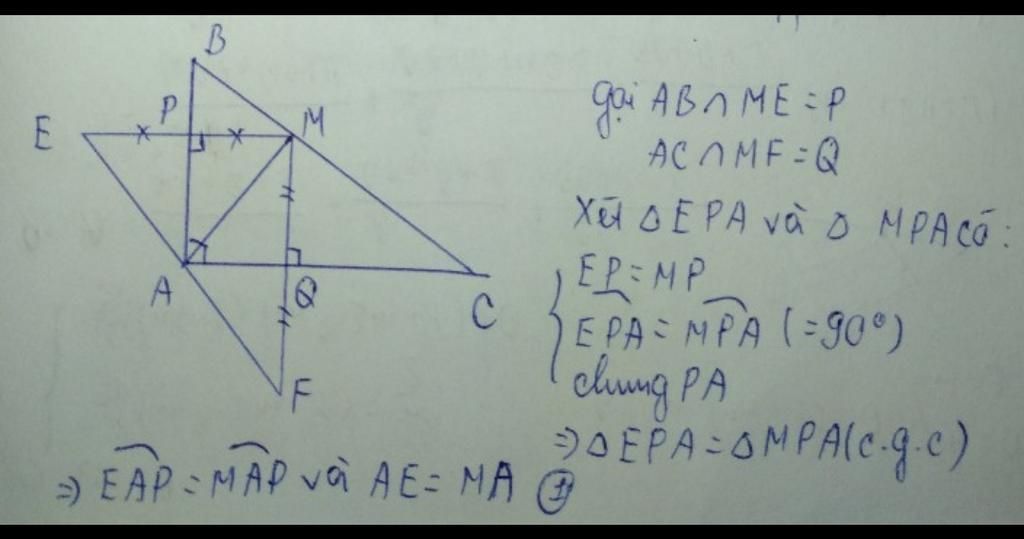 B
E
P
M
A
Q
C
F
gọi AB ∩ ME = P
AC ∩ MF = Q
Xét △ EPA và △ MPA có:
EP = MP
EPA = MPA (= 90°)
chung PA
⇒ △ EPA = △ MPA (c.g.c)
⇒ EAP = MAP và AE = MA ①